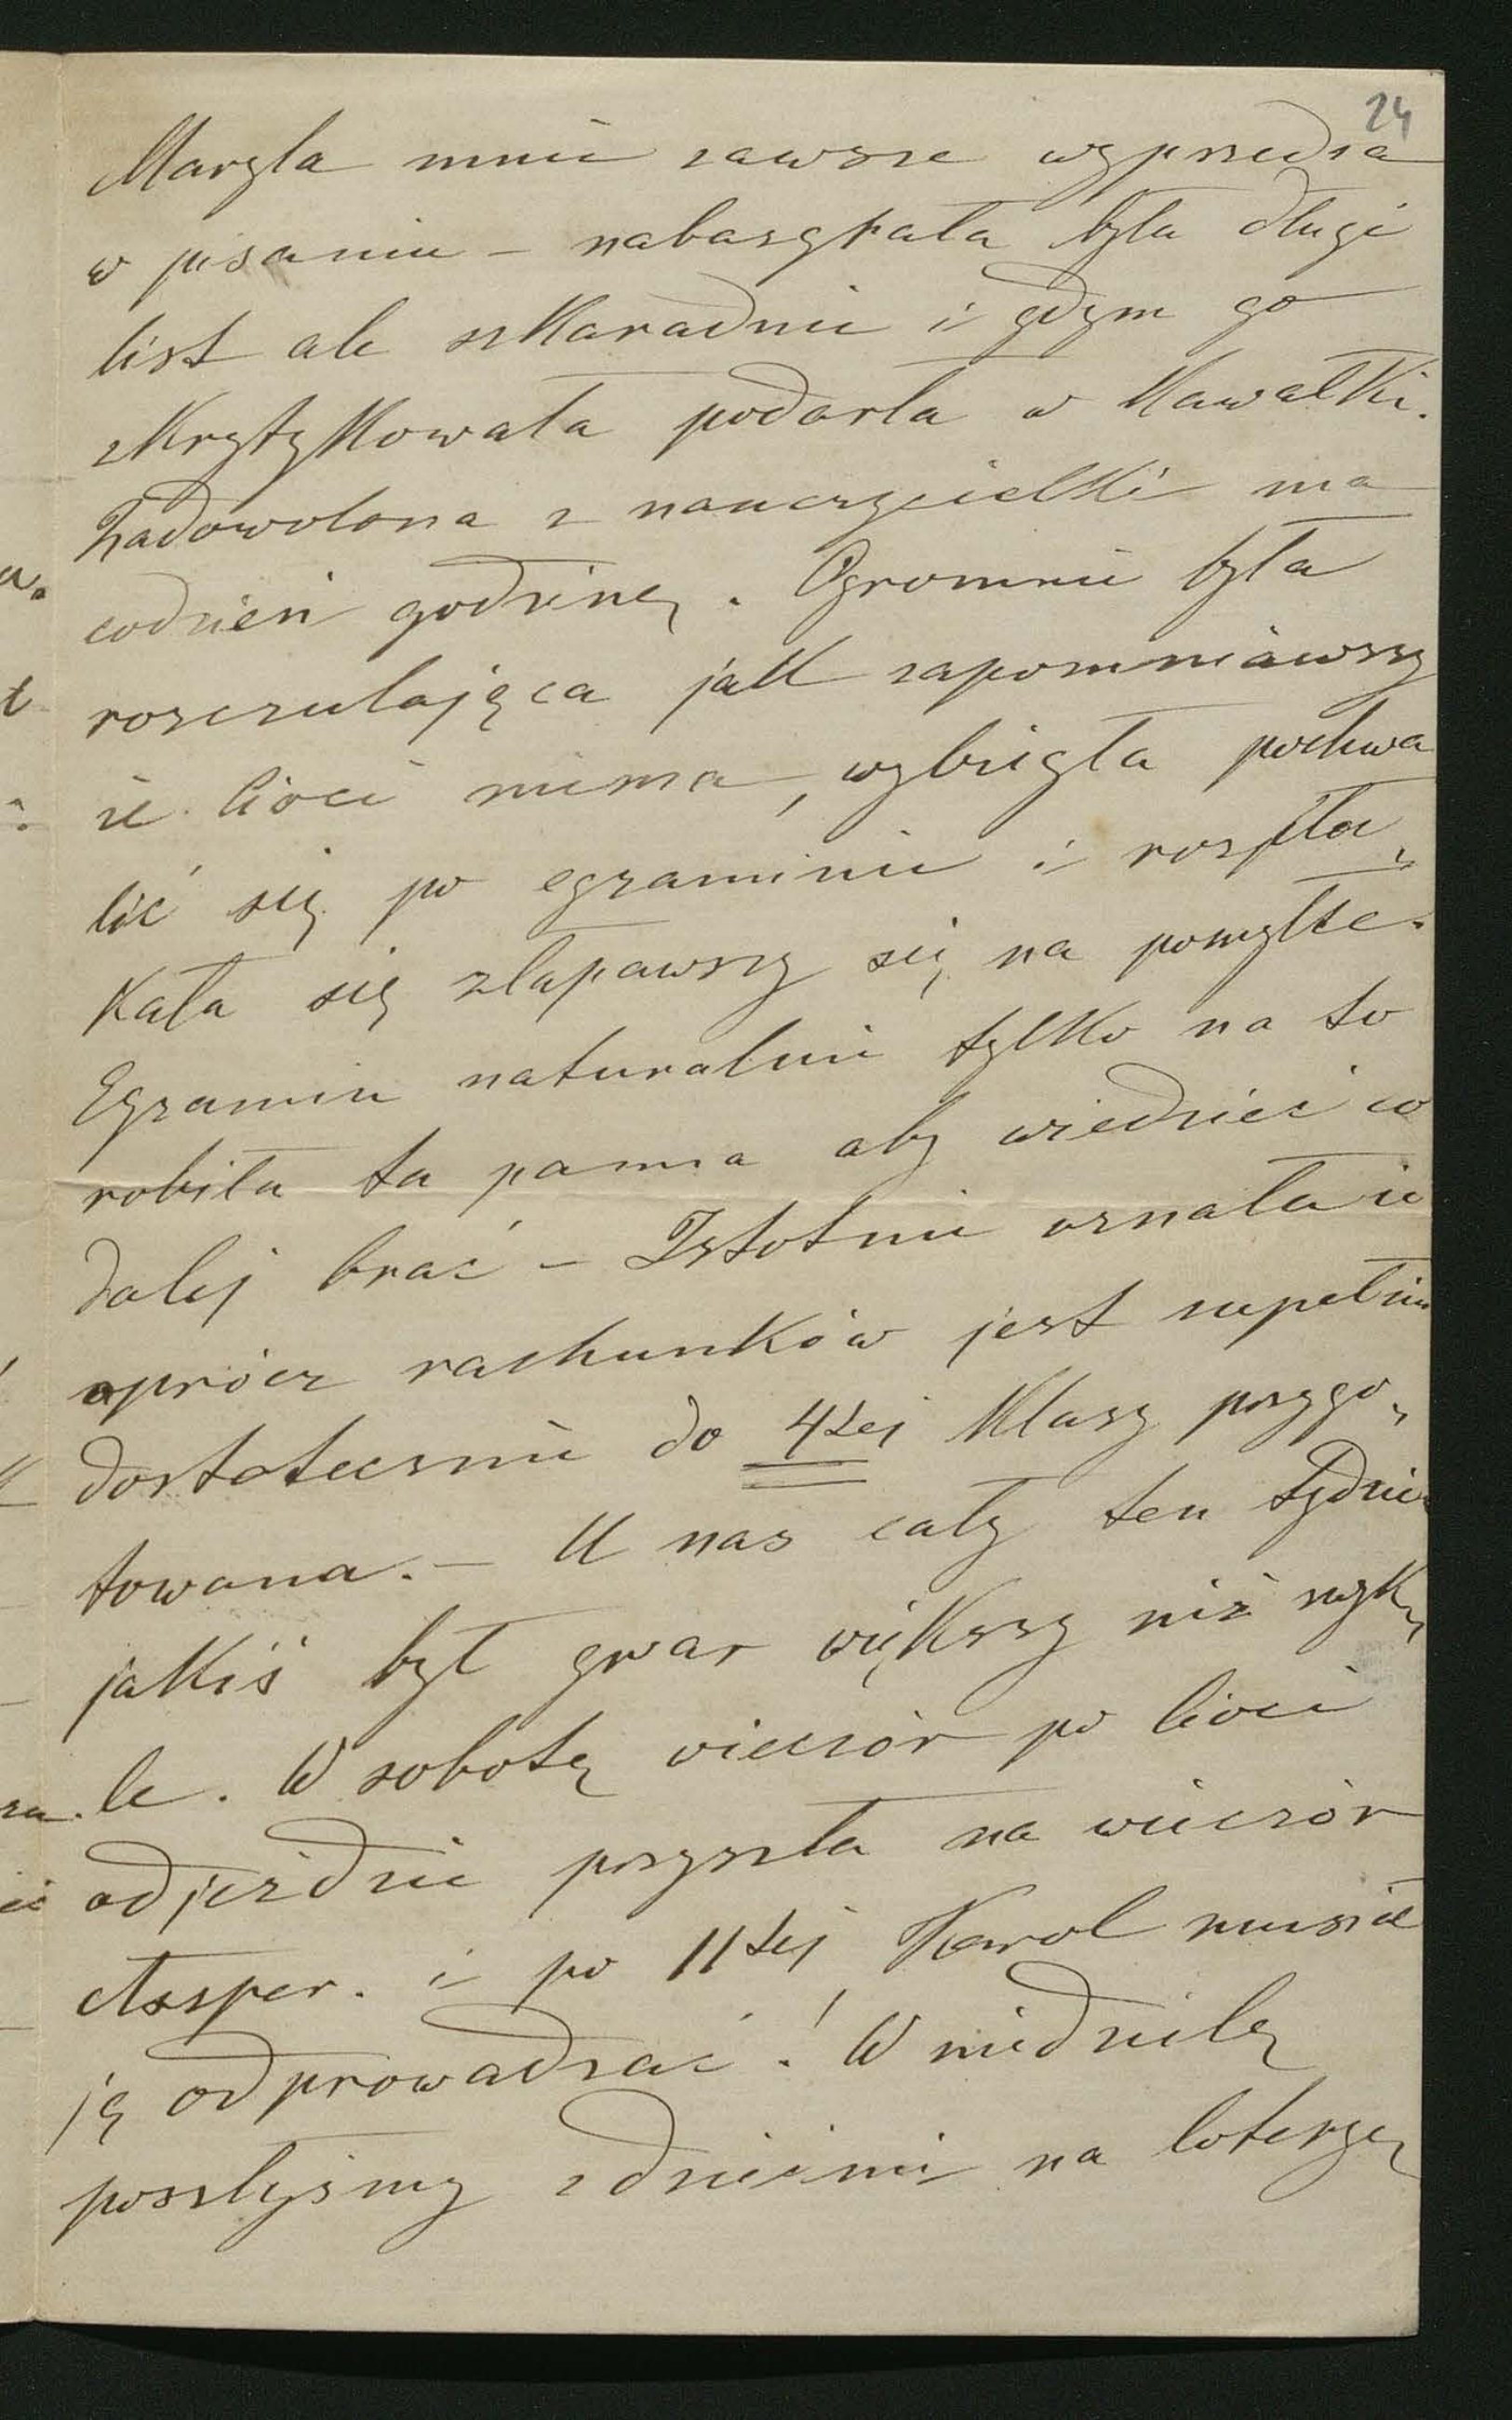 24
Maryla mnie zawsze wyprzedza
w pisaniu – nabazgrała była długi
list ale szkaradnie i gdym go
skrytykowała podarła w kawałki.
Zadowolona z nauczycielki ma
codzień godzinę. Ogromnie była
rozczulająca jak zapomniawszy
że cioci niema, wybiegła pochwa
lić się po egzaminie i rozpła„
kała się złapawszy się na pomyłce.
Egzamin naturalnie tylko na to
robiła ta panna aby wiedzieć co
dalej brać – Istotnie uznała że
oprócz rachunków jest zupełnie
dostatecznie do 4tej klasy przygo„
towana. – U nas cały ten tydzień
jakiś był gwar większy niż zwyk„
le. W sobotę wieczór po cioci
odjeździe przyszła na wieczór
Assper. i po 11tej Karol musiał
ją odprowadzać! W niedzielę
poszłyśmy z dziećmi na loteryę